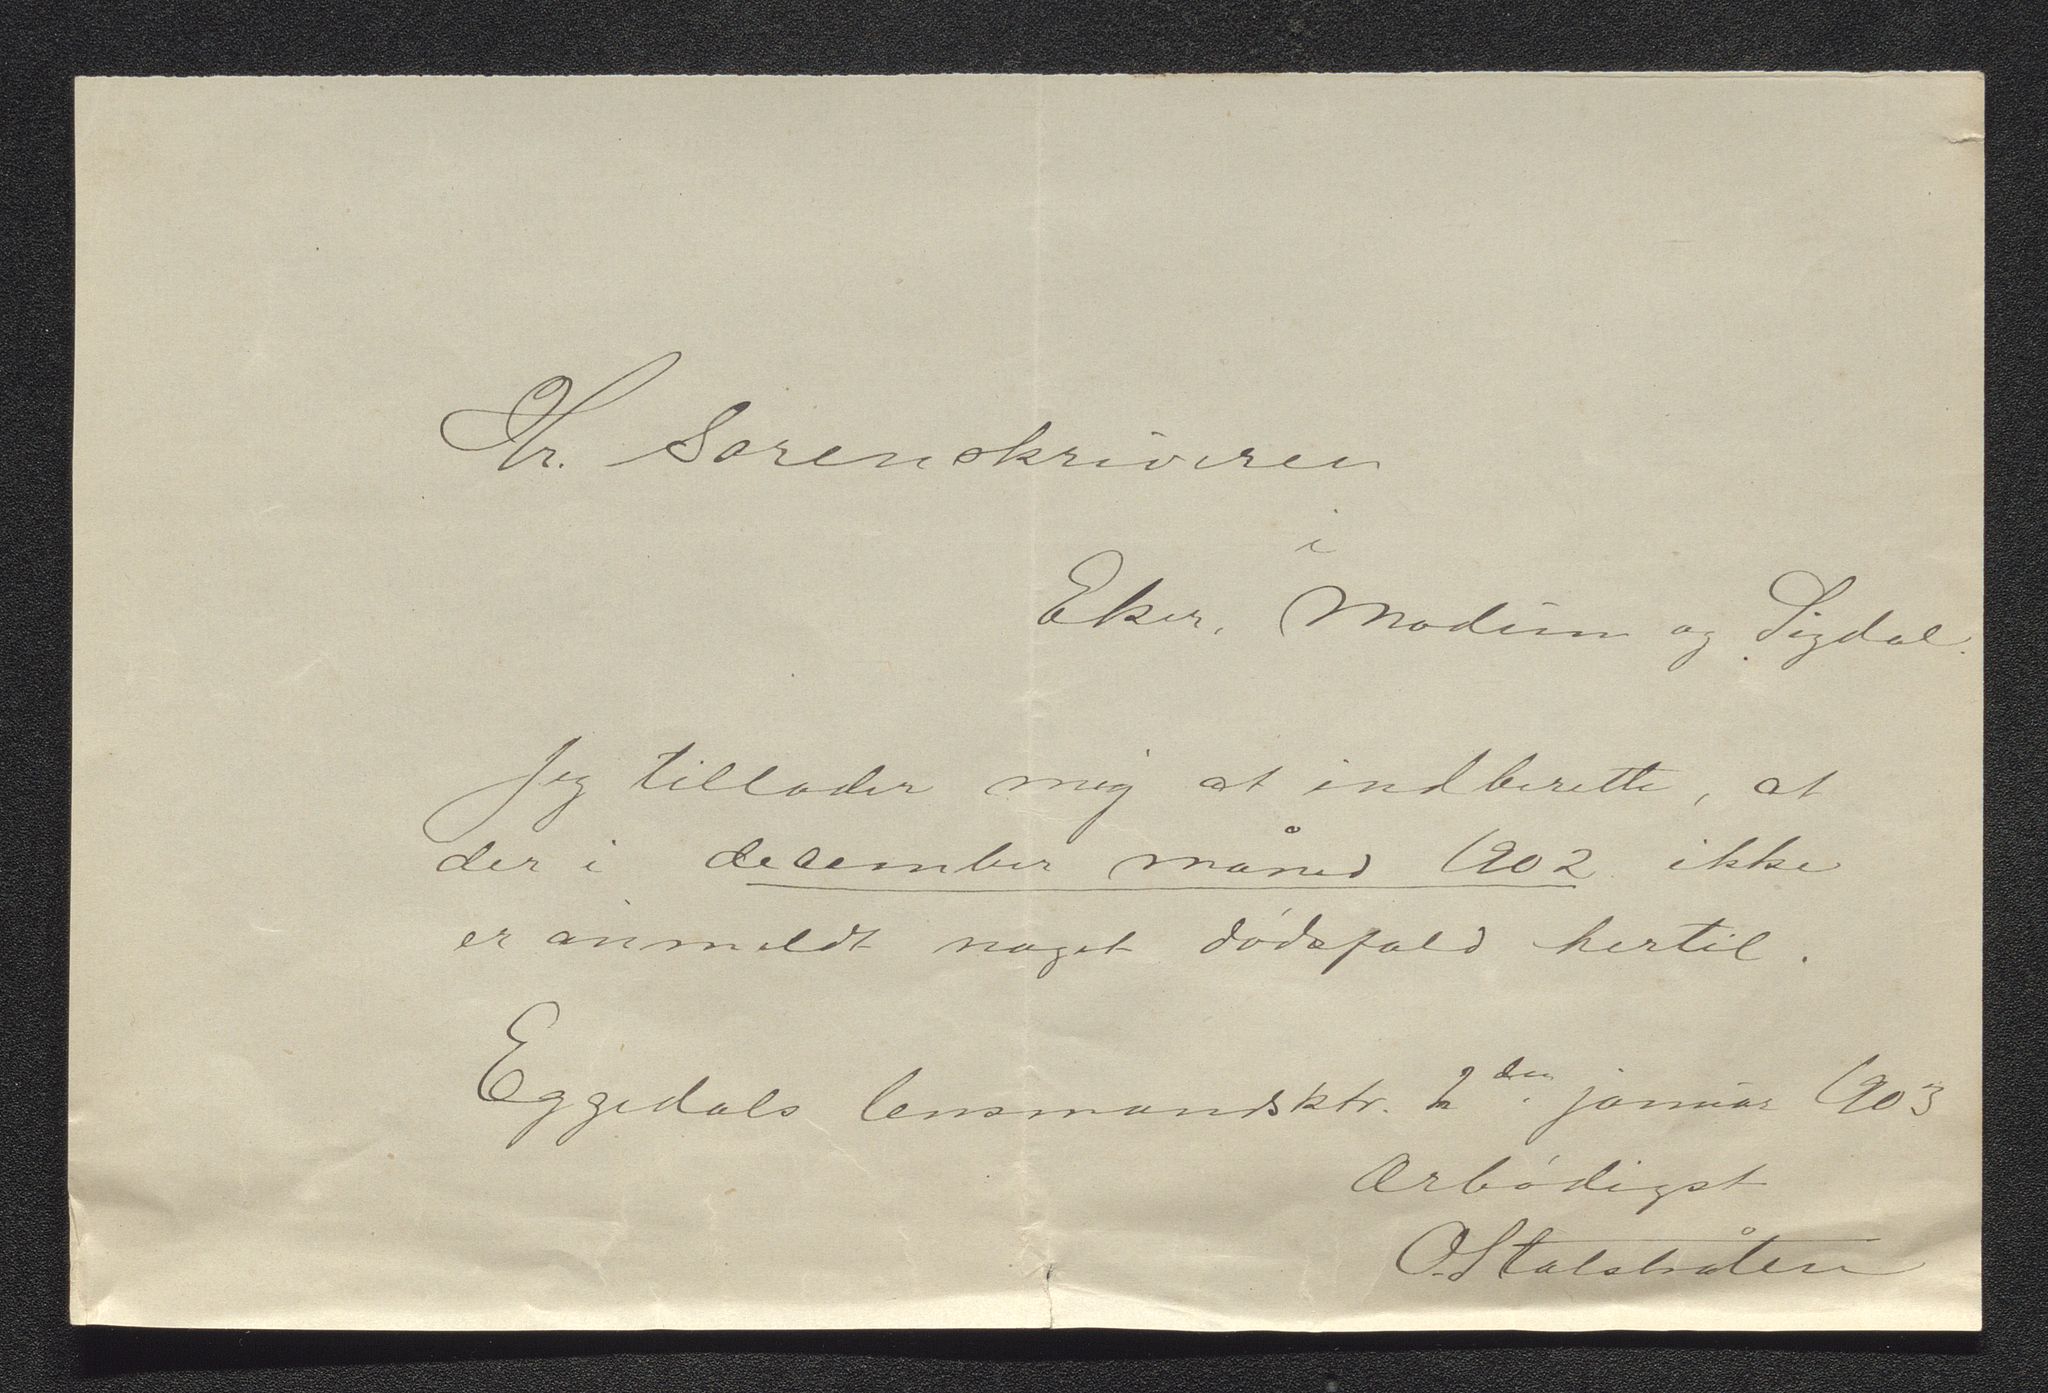 Hr. Sorenskriveren
i
Eker, Modum og Sigdal.
Jeg tillader mig at indberette, at
der i december måned 1902 ikke
er anmeldt noget dødsfald hertil.
Eggedals lensmandsktr. 2den januar 1903
Ærbødigst
O. Stalsbråten